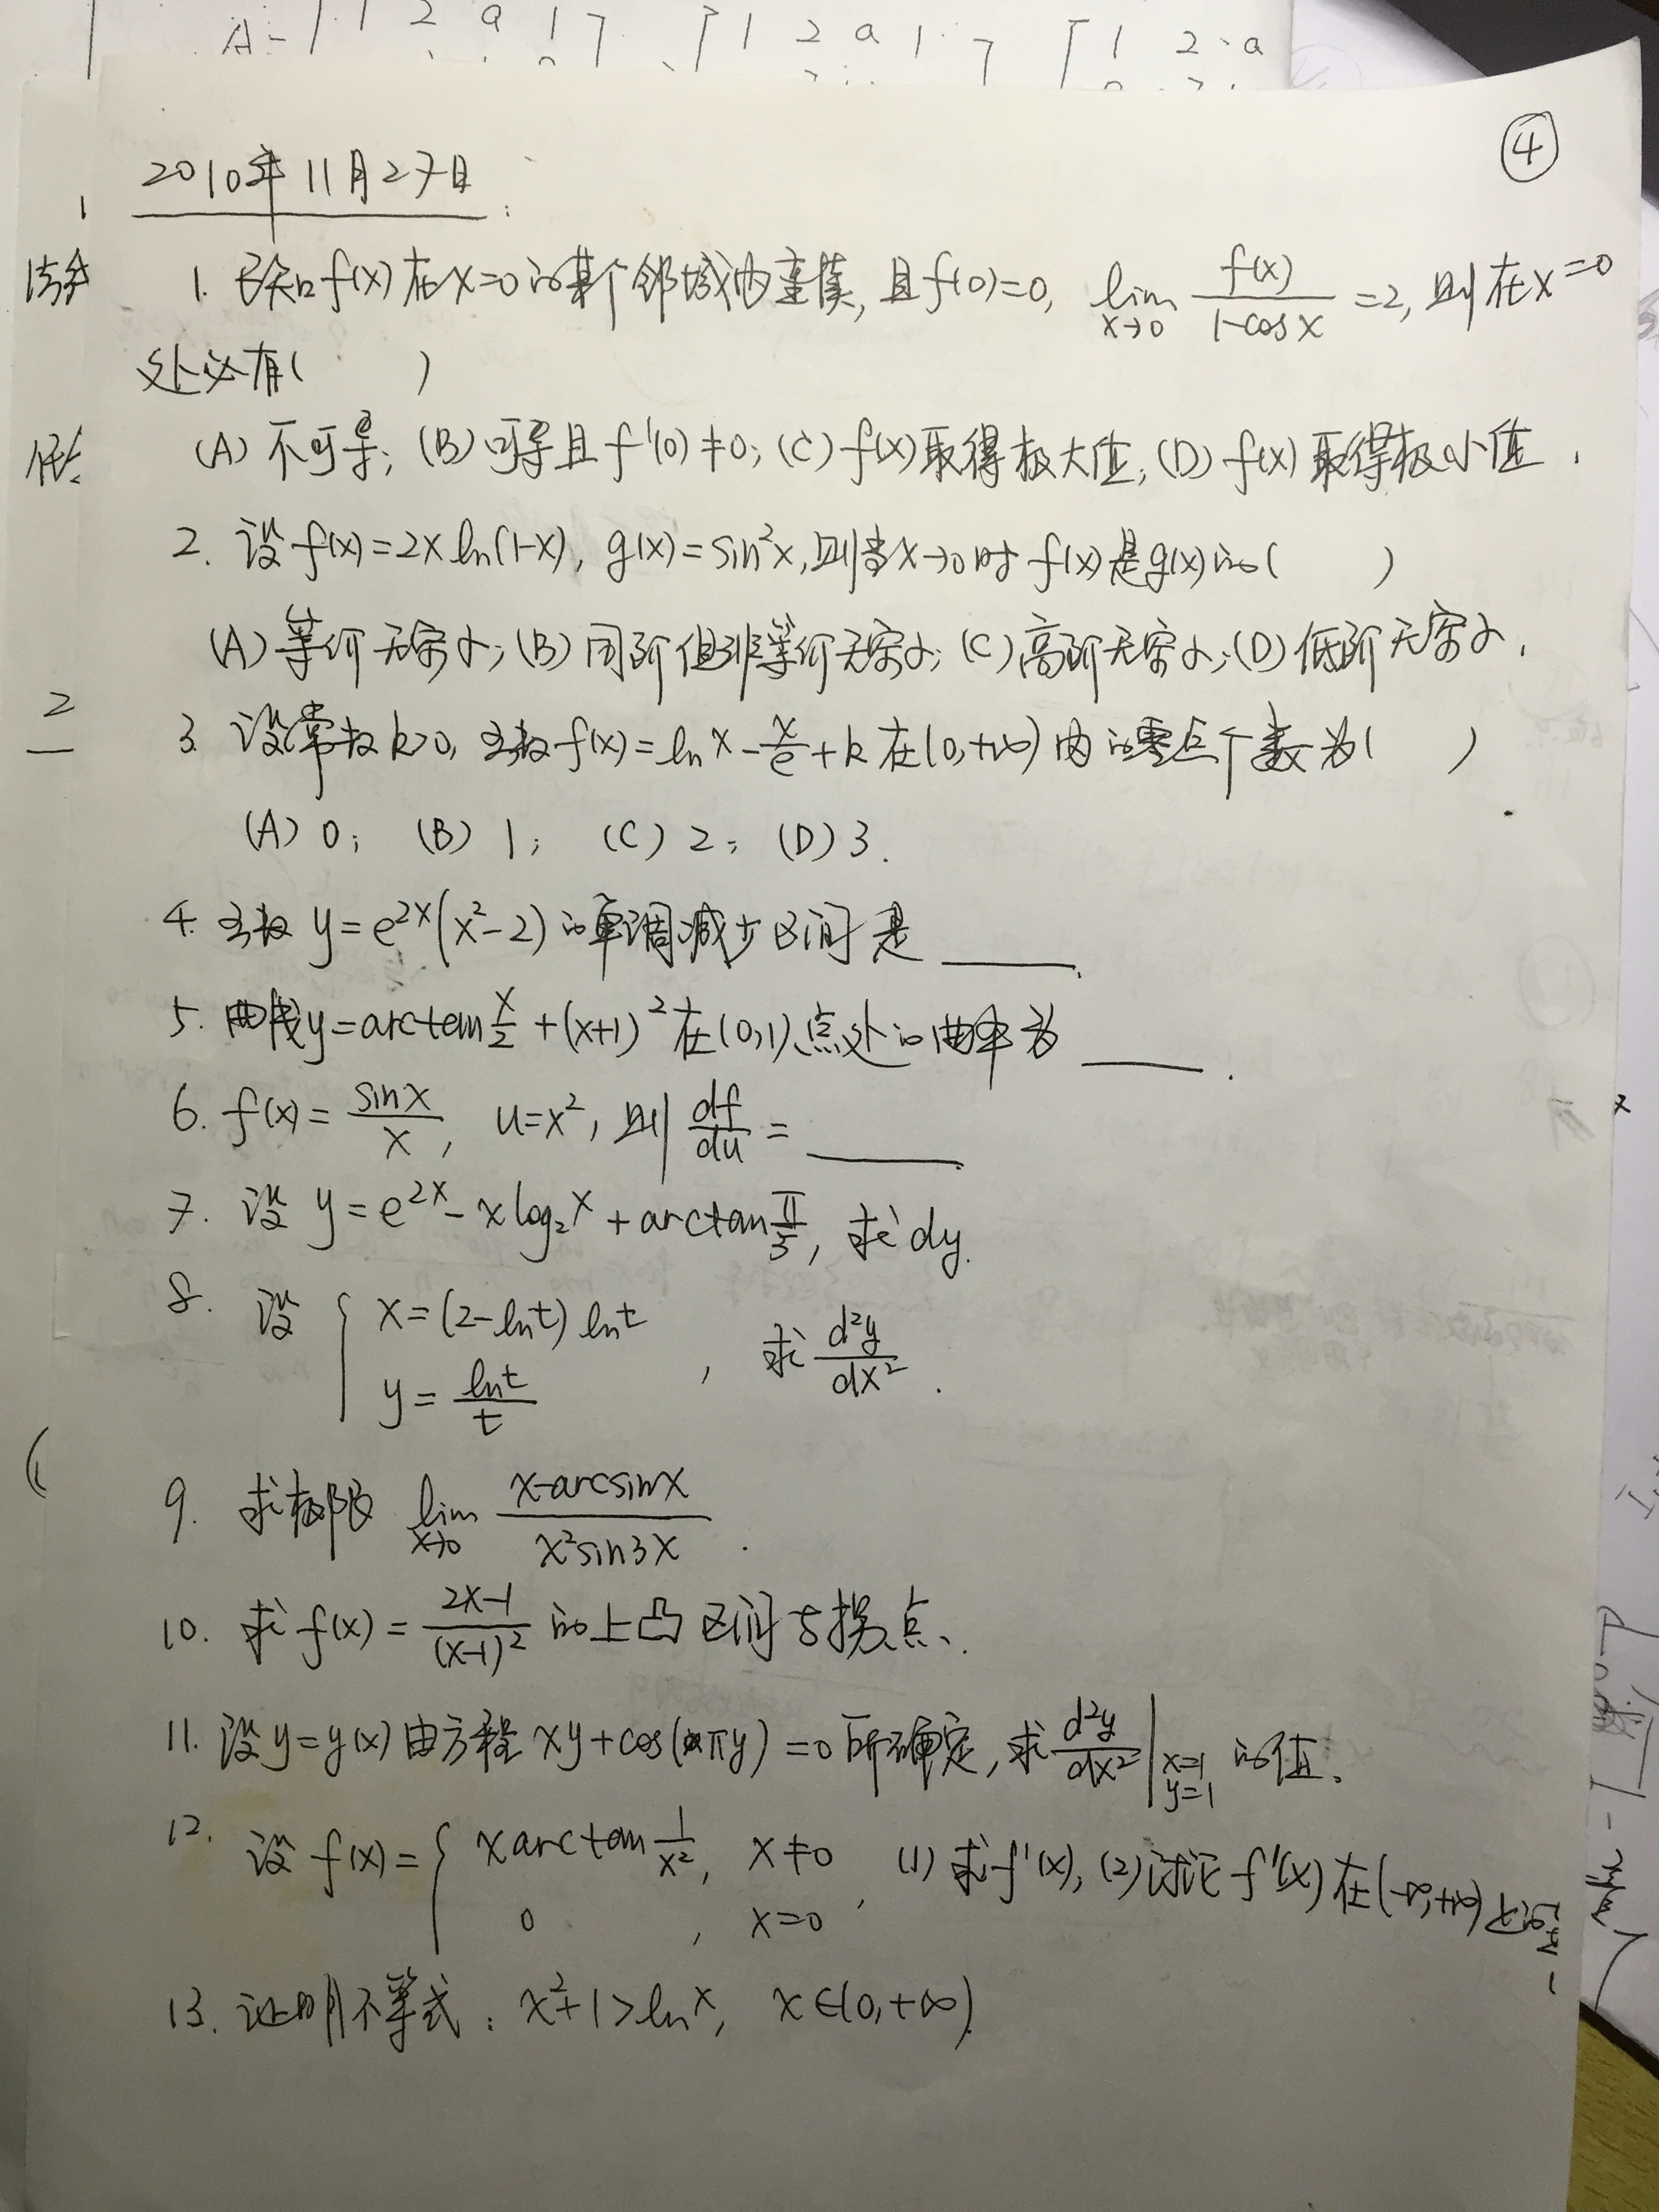 A= 1 1 2 a 1 1 2 a 1 1 2 a
④
2010年11月27日:
1. 已知f(x)在x=0的某个邻域内连续, 且f(0)=0, lim x→0 f(x)/(1-cosx) =2, 则在x=0
处必有( )
(A) 不可导; (B) 可导且f'(0)≠0; (C) f(x)取得极大值; (D) f(x)取得极小值.
2. 设f(x)=2x ln(1-x), g(x)=sin²x, 则当x→0时f(x)是g(x)的( )
(A) 等价无穷小; (B) 同阶但非等价无穷小; (C) 高阶无穷小; (D) 低阶无穷小.
3. 设常数k>0, 函数f(x)=lnx-x/e+k在(0,+∞)内的零点个数为( )
(A) 0; (B) 1; (C) 2; (D) 3.
4. 函数y=e^{2x}(x²-2)的单调减少区间是____.
5. 曲线y=arctan x/2+(x+1)²在(0,1)点处的曲率为____.
6. f(x)=sinx/x, u=x², 则df/du=____.
7. 设y=e^{2x}-xlog₂x+arctan π/5, 求dy.
8. 设{x=(2-lnt)lnt
y=lnt/t, 求d²y/dx².
9. 求极限 lim x→0 (x-arcsinx)/(x²sin3x).
10. 求f(x)=(2x-1)/(x-1)²的上凸区间与拐点.
11. 设y=y(x)由方程xy+cos(πy)=0所确定, 求d²y/dx²|x=1 y=1的值.
12. 设f(x)={x arctan 1/x², x≠0
0, x=0, (1) 求f'(x), (2) 讨论f'(x)在(-∞,+∞)上的
13. 证明不等式: x²+1>lnx, x∈(0,+∞).